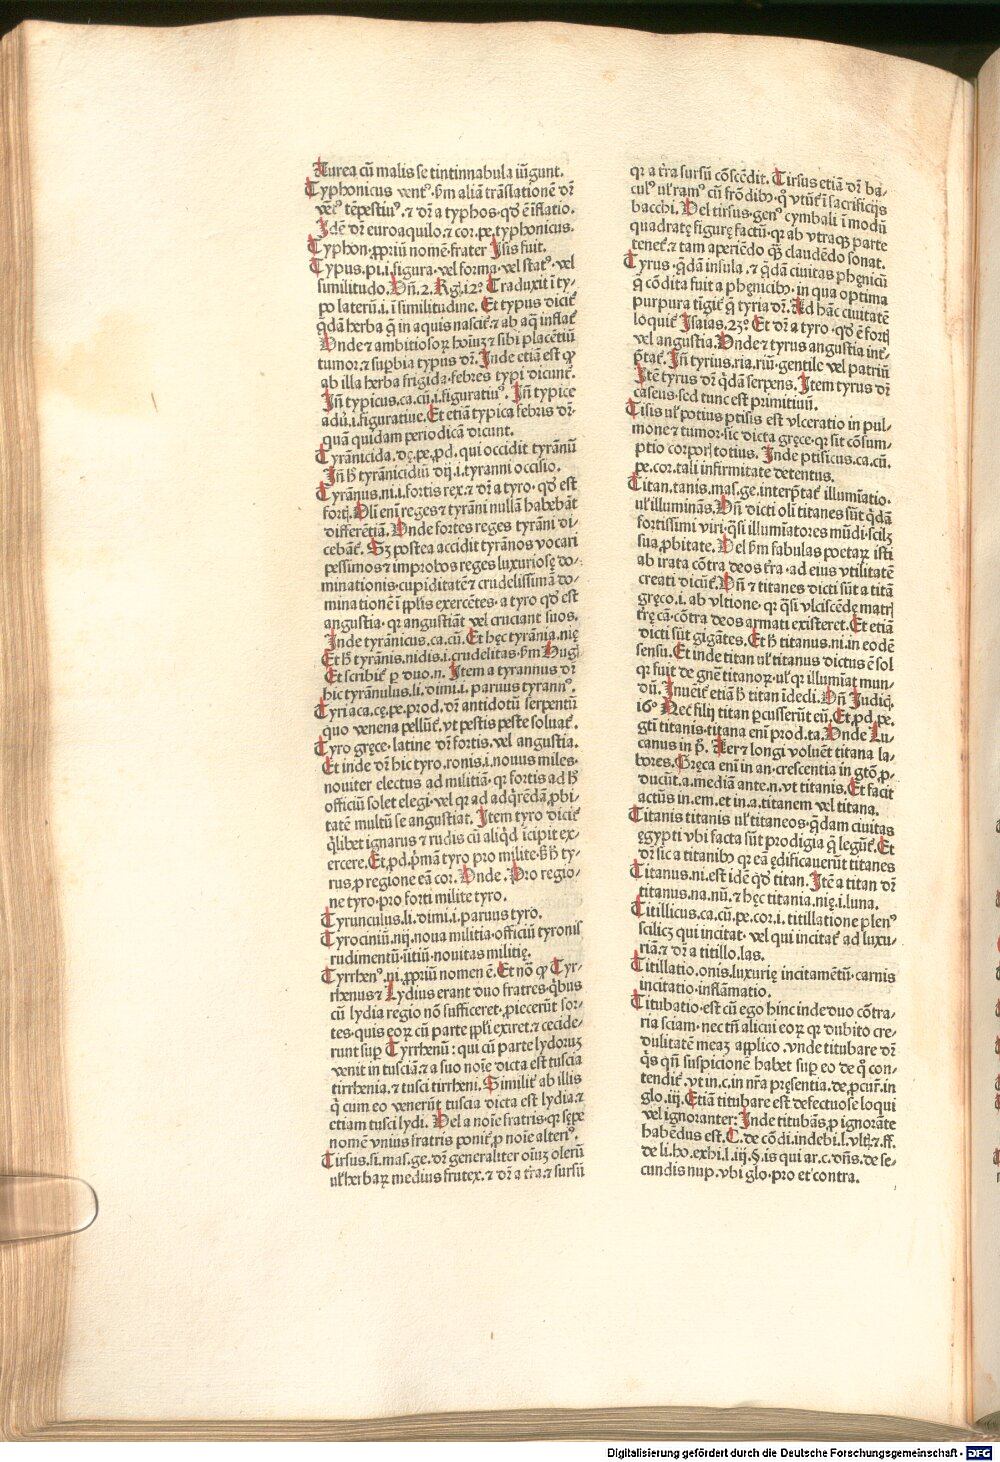 Aurea cū malis se tintinnabula iūgunt.
Typhonicus ventꝰ. ẜm aliā trāslationē dr̄
vecꝰ tēpestiuꝰ. ⁊ dr̄ a typhos. qđ ē īflatio.
Idē dr̄ euroaquilo. ⁊ cor. pe. typhonicus.
Typhon. ꝓpriū nomē. frater Isis fuit.
Typus. pi. i. figura. vel forma. vel statꝰ. vel
similitudo. Vñ. 2. Rg̃. 12º. Traduxit ī ty-
po laterū. i. ī similitudine. Et typus dicit̄
q̄dā herba q̄ in aquis nascit̄. ⁊ ab aq̄ inflat̄
Vnde ⁊ ambitiosoꝝ hoīuꝫ ⁊ sibi placētiū
tumor. ⁊ suꝑbia typus dr̄. Inde etiā est ꝙ
ab illa herba frigida. febres typi dicunt̄.
Iñ typicus. ca. cū. i. figuratiuꝰ. Iñ typice
adū. i. figuratiue. Et etiā typica febris dr̄.
quā quidam periodicā dicunt.
Tyrānicida. dę. pe. ꝓd. qui occidit tyrānū
Iñ ħ tyrānicidiū dij. i. tyranni occisio.
Tyrānus. ni. i. fortis rex. ⁊ dr̄ a tyro. qđ est
fortꝭ. Oli eni reges ⁊ tyrāni nullā habebāt
differētiā. Vnde fortes reges tyrāni di-
cebāt̄. Sꝫ postea accidit tyrānos vocari
pessimos ⁊ improbos reges luxuriosę do-
minationis. cupiditatē ⁊ crudelissimā do-
minationē ī ꝑplis exercētes. a tyro qđ est
angustia. qꝛ angustiāt vel cruciant suos.
Inde tyrānicus. ca. cū. Et hęc tyrānia. nię
Et ħ tyrānis. nidis. i. crudelitas. ẜm Hugꝭ
Et scribit̄ ꝑ duo. n. Item a tyrannus dr̄
hic tyrānulus. li. dimi. i. paruus tyrannꝰ.
Tyriaca. cę. pe. prod. dr̄ antidotū serpentū
quo venena pellūt̄. vt pestis peste soluat̄.
Tyro gręce. latine dr̄ fortis. vel angustia.
Et inde dr̄ hic tyro. ronis. i. nouus miles.
nouiter electus ad militiā. qꝛ fortis ad ħ
officiū solet elegi. vel qꝛ ad adq̇rēdā ꝓbi-
tatē multū se angustiat. Item tyro dicit̄
q̇libet ignarus ⁊ rudis cū aliqđ īcipit ex-
ercere. Et ꝓd. pͥmā tyro pro milite. ẜꝫ ħ ty-
rus ꝓ regione eā cor. Vnde. Pro regio-
ne tyro. pro forti milite tyro.
Tyrunculus. li. dimi. i. paruus tyro.
Tyrociniū. nij. noua militia. officiū tyronis
rudimentū. ūitiū. nouitas militię.
Tyrrhenꝰ. ni. ꝓpriū nomen ē. Et nō ꝙ Tyr-
rhenus ⁊ Lydius erant duo fratres. q̇bus
cū lydia regio nō sufficeret. ꝓiecerūt sor-
tes. quis eoꝝ cū parte ꝑpli exiret. ⁊ cecide-
runt suꝑ Tyrrhenū: qui cū parte lydoruꝫ
venit in tusciā. ⁊ a suo noīe dicta est tuscia
tirrhenia. ⁊ tusci tirrheni. Similit̄ ab illis
q̇ cum eo venerūt tuscia dicta est lydia. ⁊
etiam tusci lydi. Vel a noīe fratris. qꝛ sępe
nomē vnius fratris ponit̄ ꝓ noīe alteriꝰ.
Tirsus. si. mas. ge. dr̄ generaliter oīuꝫ olerū
ul̄ herbaꝝ medius frutex. ⁊ dr̄ a tr̄a. ⁊ sursū
qꝛ a tr̄a sursū cōscēdit. Tirsus etiā dr̄ ba-
culꝰ ul̄ ramꝰ cū frōdibꝫ. q̇ vtūt̄ ī sacrificijs
bacchi. Vel tirsus. genꝰ cymbali ī modū
quadratę figurę factū. qꝛ ab vtraqꝫ parte
tenet̄. ⁊ tam aperiēdo qꝫ claudēdo sonat.
Tyrus. q̄dā insula. ⁊ q̄dā ciuitas phęnicū
q̄ cōdita fuit a phęnicibꝫ. in qua optima
purpura tīgit̄ q̄ tyria dr̄. Ad hāc ciuitatē
loquit̄ Isaias. 23º. Et dr̄ a tyro. qđ ē fortꝭ
vel angustia. Vnde ⁊ tyrus angustia int̄-
p̄tat̄. Iñ tyrius. ria. riū. gentile vel patriū
Itē tyrus dr̄ q̇dā serpens. Item tyrus dr̄
caseus. sed tunc est primitiuū.
Tisis ul̄ potius ptisis est vlceratio in pul-
mone ⁊ tumor. sic dicta gręce. qꝛ sit cōsum-
ptio corporꝭ totius. Inde ptisicus. ca. cū.
pe. cor. tali infirmitate detentus.
Titan. tanis. mas. ge. interp̄tat̄ illumīatio.
ul̄ illuminās. Vñ dicti oli titanes sūt q̇dā
fortissimi viri. q̄si illumiatores mūdi. scilꝫ
sua ꝓbitate. Vel ẜm fabulas poetaꝝ isti
ab irata cōtra deos tr̄a. ad eius vtilitatē
creati dicūt̄. Vñ ⁊ titanes dicti sūt a titā
gręco. i. ab vltione. qꝛ q̄si vlciscēdę matrꝭ
tr̄ę cā. cōtra deos armati existeret. Et etiā
dicti sūt gigātes. Et ħ titanus. ni. in eodē
sensu. Et inde titan ul̄ titanus dictus ē sol
qꝛ fuit de gn̄e titanoꝝ. ul̄ qꝛ illumīat mun-
dū. Inuēit̄ etiā ħ titan īdecli. Vñ Judicꝭ.
16º Nec filij titan ꝑcusserūt eū. Et ꝓd. pe.
gtī titanis. titana eni prod. ta. Vnde Lu-
canus in pͥ. Aer ⁊ longi voluēt titana la-
bores. Gręca eni in an. crescentia in gtō. ꝓ-
ducūt. a. mediā ante. n. vt titanis. Et facit
actūs in. em. et in. a. titanem vel titana.
Titanis titanis ul̄ titaneos. q̄dam ciuitas
ęgypti vbi facta sūt prodigia q̄ legūt̄. Et
dr̄ sic a titanibꝫ qꝛ eā ędificauerūt titanes
Titanus. ni. est idē qđ titan. Itē a titan dr̄
titanus. na. nū. ⁊ hęc titania. nię. i. luna.
Titillicus. ca. cū. pe. cor. i. titillatione plenꝰ
scilicꝫ qui incitat. vel qui incitat̄ ad luxu-
riā. ⁊ dr̄ a titillo. las.
Titillatio. onis. luxurię incitamētū. carnis
incitatio. inflāmatio.
Titubatio. est cū ego hinc inde duo cōtra-
ria sciam. nec tn̄ alicui eoꝝ qꝛ dubito cre-
dulitatē meaꝫ applico. vnde titubare dr̄
q̇s qn̄ suspicionē habet suꝑ eo de q̇ con-
tendit̄. vt in. c. in nr̄a pręsentia. de. ꝓcur̄. in
glo. iij. Etiā titubare est defectuose loqui
vel ignoranter: Inde titubās. ꝑ ignorāte
habēdus est. C. de cōdi. indebi. l. vltꝭ. ⁊. ff.
de li. ho. exhi. l. iij. §. is qui ar. c. dn̄s. de se-
cundis nup. vbi glo. pro et contra.
Digitalisierung gefördert durch die Deutsche Forschungsgemeinschaft - DFG